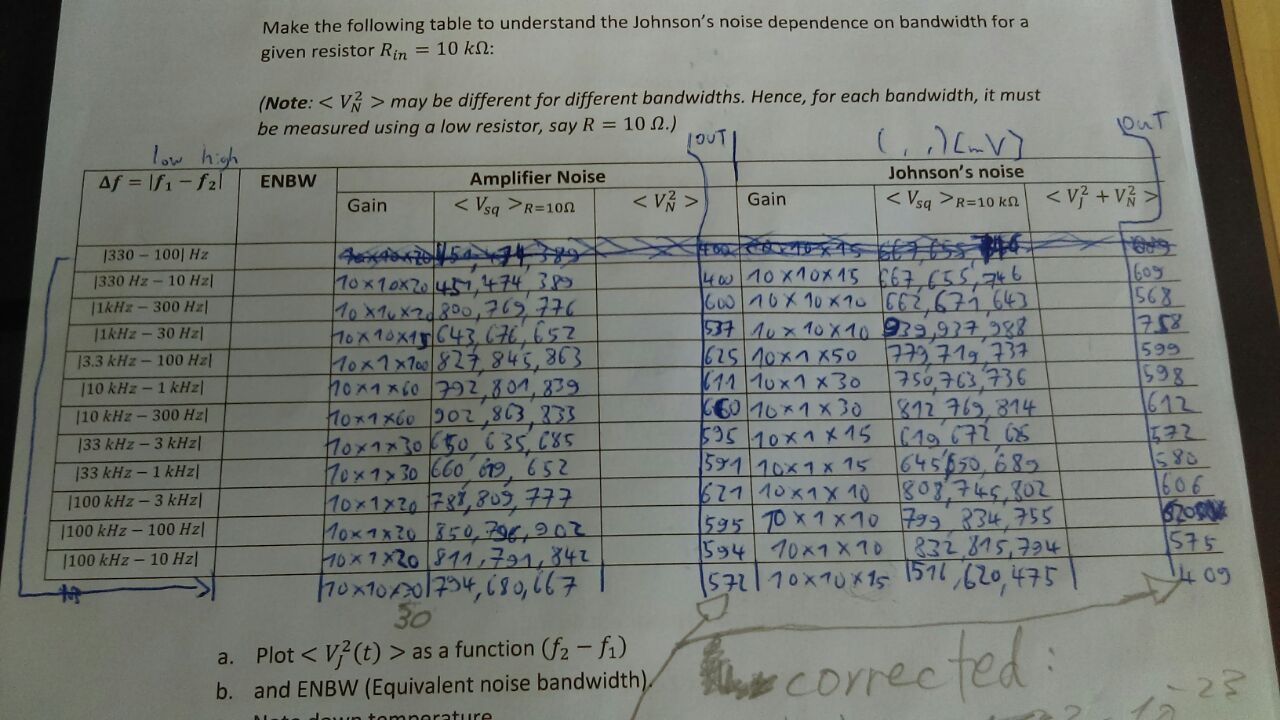 Make the following table to understand the Johnson's noise dependence on bandwidth for a
given resistor R_in = 10 kΩ:
(Note: < V_N^2 > may be different for different bandwidths. Hence, for each bandwidth, it must
be measured using a low resistor, say R = 10 Ω.)
low high OUT ( , , ) [mV] OUT
Δf = |f1 − f2| ENBW Amplifier Noise Johnson's noise
Gain < V_sq >R=10Ω < V_N^2 > Gain < V_sq >R=10 kΩ < V_J^2 + V_N^2 >
|330 − 100| Hz 10x10x20 451, 474, 389 400 10x10x15 667, 655, 746 609
|330 Hz − 10 Hz| 10x10x20 451, 474 389 400 10x10x15 667, 655, 746 609
|1kHz − 300 Hz| 10x10x20 800, 769, 776 600 10x10x10 662, 671, 643 568
|1kHz − 30 Hz| 10x10x15 643, 676, 652 537 10x10x10 939, 937, 988 758
|3.3 kHz − 100 Hz| 10x1x100 827, 845, 863 625 10x1x50 779, 719, 737 599
|10 kHz − 1 kHz| 10x1x60 792, 801, 839 611 10x1x30 750, 763, 736 598
|10 kHz − 300 Hz| 10x1x60 902, 863, 833 660 10x1x30 812 769, 814 612
|33 kHz − 3 kHz| 10x1x30 650, 635, 685 595 10x1x15 619, 672, 572
|33 kHz − 1 kHz| 10x1x30 660 619, 652 591 10x1x15 645, 650, 689 580
|100 kHz − 3 kHz| 10x1x20 788, 809, 777 621 10x1x10 808, 745, 802 606
|100 kHz − 100 Hz| 10x1x20 850, 796, 902 595 10x1x10 799 834, 755 620
|100 kHz − 10 Hz| 10x1x20 811, 791, 842 594 10x1x10 832, 815, 794 575
10x10x30 794, 680, 667 572 10x10x15 516, 620, 475 409
30
a. Plot < V_J^2(t) > as a function (f2 − f1)
corrected:
b. and ENBW (Equivalent noise bandwidth).
-23
Note down temperature